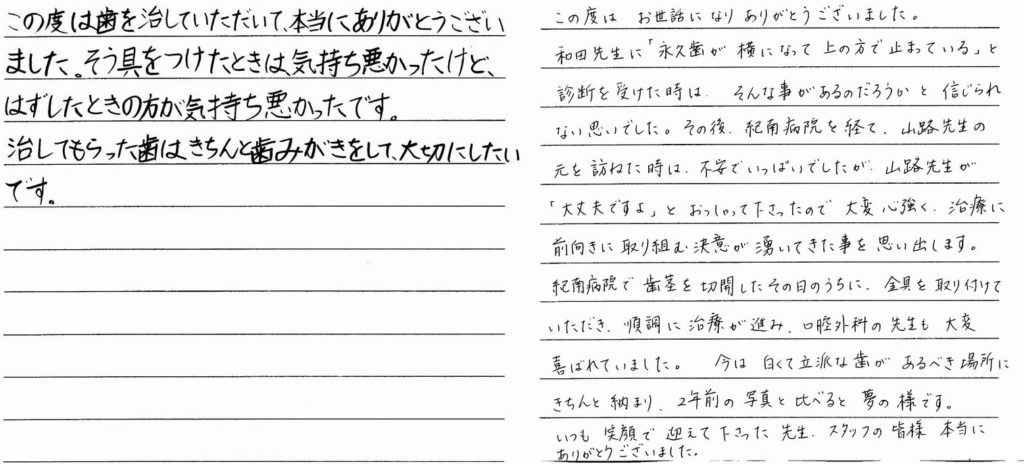 この度は歯を治していただいて、本当にありがとうござい
ました。そう具をつけたときは、気持ち悪かったけど、
はずしたときの方が気持ち悪かったです。
治してもらった歯はきちんと歯みがきをして、大切にしたい
です。
この度は お世話になり ありがとうございました。
和田先生に「永久歯が 横になって 上の方で止まっている」と
診断を受けた時は、そんな事があるのだろうかと 信じられ
ない思いでした。その後、紀南病院を経て、山路先生の
元を訪ねた時は、不安でいっぱいでしたが、山路先生が
「大丈夫ですよ」と おっしゃって下さったので 大変心強く、治療に
前向きに取り組む決意が湧いてきた事を思い出します。
紀南病院で 歯茎を切開したその日のうちに、金具を取り付けて
いただき、順調に治療が進み、口腔外科の先生も 大変
喜ばれていました。 今は 白くて立派な歯が あるべき場所に
きちんと納まり、2年前の写真と比べると 夢の様です。
いつも 笑顔で 迎えて下さった 先生、スタッフの皆様 本当に
ありがとうございました。